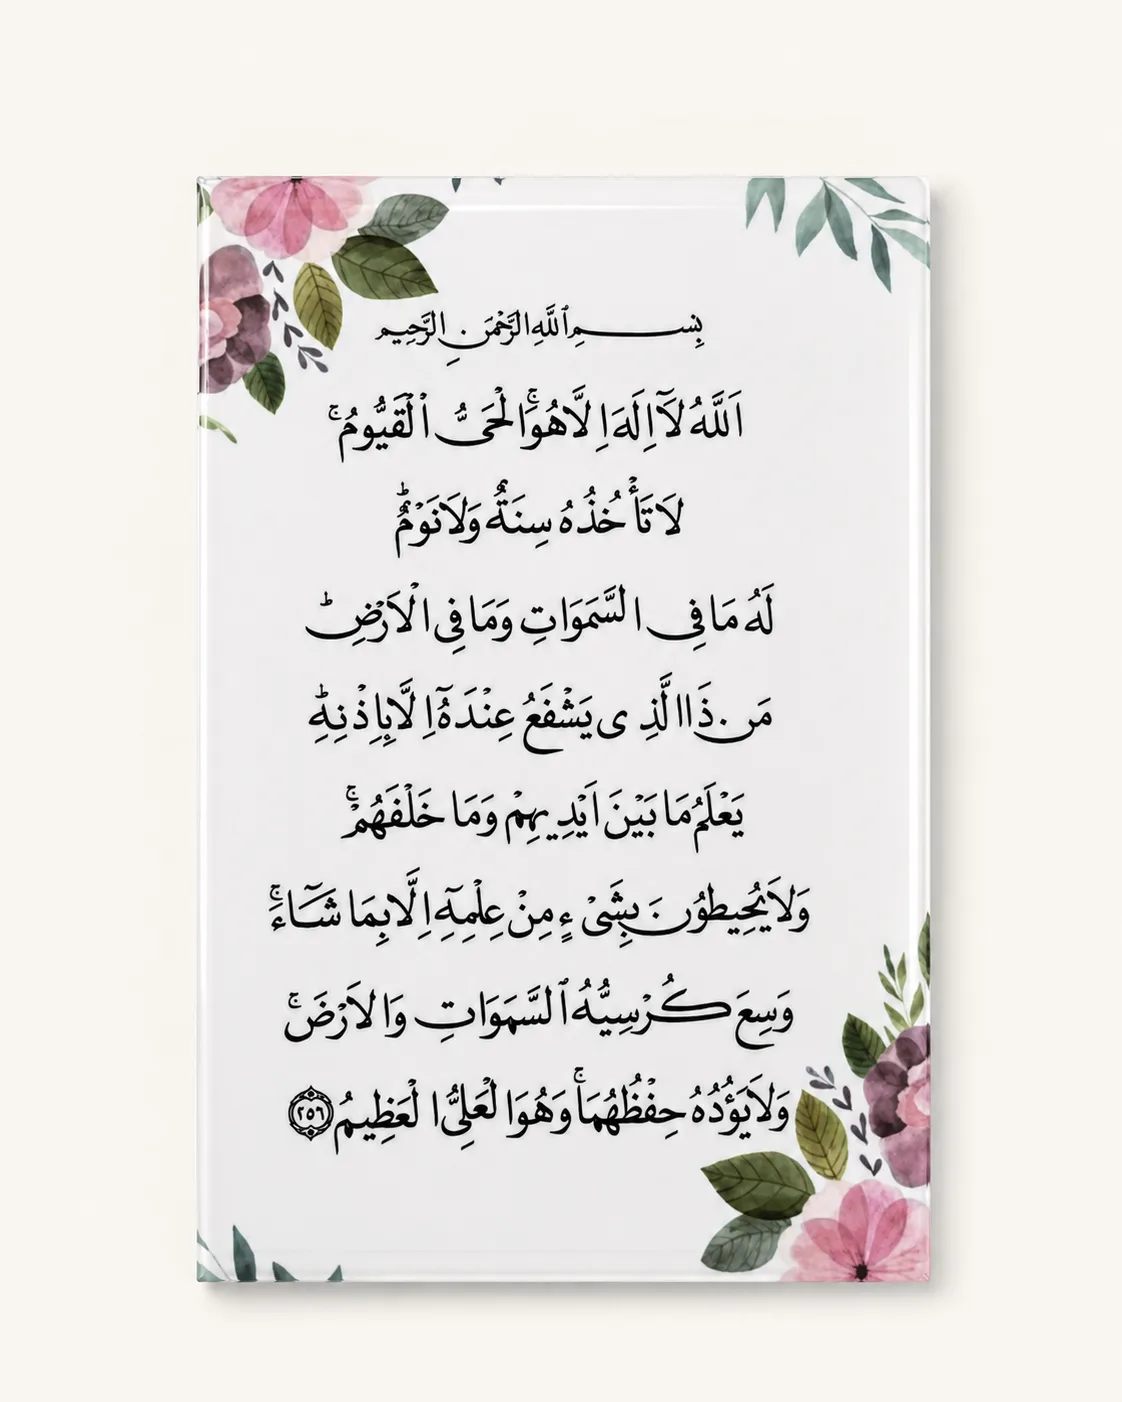 بِسْمِ ٱللَّهِ الرَّحْمَنِ الرَّحِيمِ
اَللَّهُ لَآ اِلَهَ اِلَّا هُوَۚ الْحَىُّ الْقَيُّومُۚ
لَا تَأْخُذُهُ سِنَةٌ وَلَا نَوْمٌؕ
لَهُ مَا فِى السَّمَوَاتِ وَمَا فِى الْاَرْضِؕ
مَن ذَا الَّذِى يَشْفَعُ عِنْدَهُٓ اِلَّا بِاِذْنِهِؕ
يَعْلَمُ مَا بَيْنَ اَيْدِيهِمْ وَمَا خَلْفَهُمْۚ
وَلَا يُحِيطُوْنَ بِشَىْءٍ مِنْ عِلْمِهِٓ اِلَّا بِمَا شَآءَۚ
وَسِعَ كُرْسِيُّهُ ٱلسَّمَوَاتِ وَالاَرْضَۚ
وَلَا يَؤُدُهُ حِفْظُهُمَاۚ وَهُوَ الْعَلِىُّ الْعَظِيمُ ٢٥٦